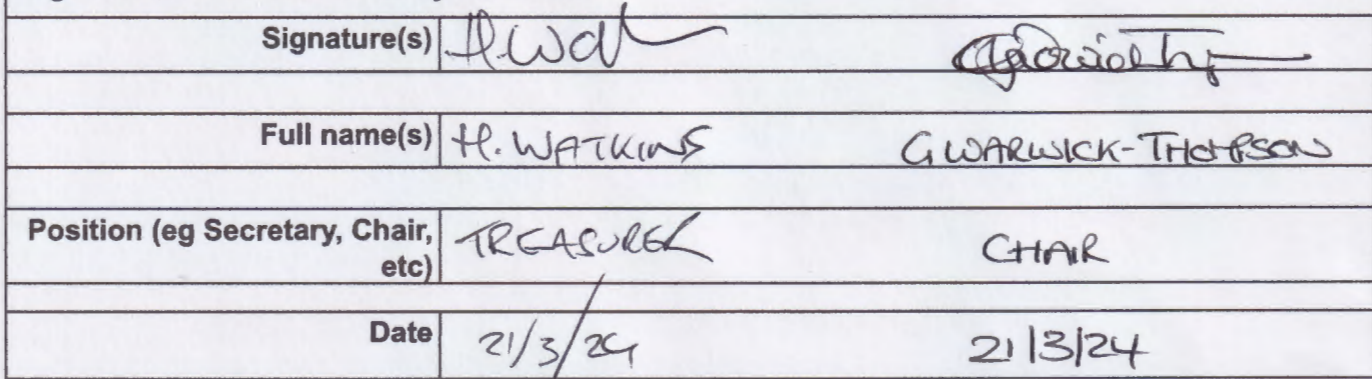 Signature(s)
Full name(s) H. WATKINS G WARWICK-THOMPSON
Position (eg Secretary, Chair, TREASURER CHAIR
etc)
Date 21/3/24 21/3/24